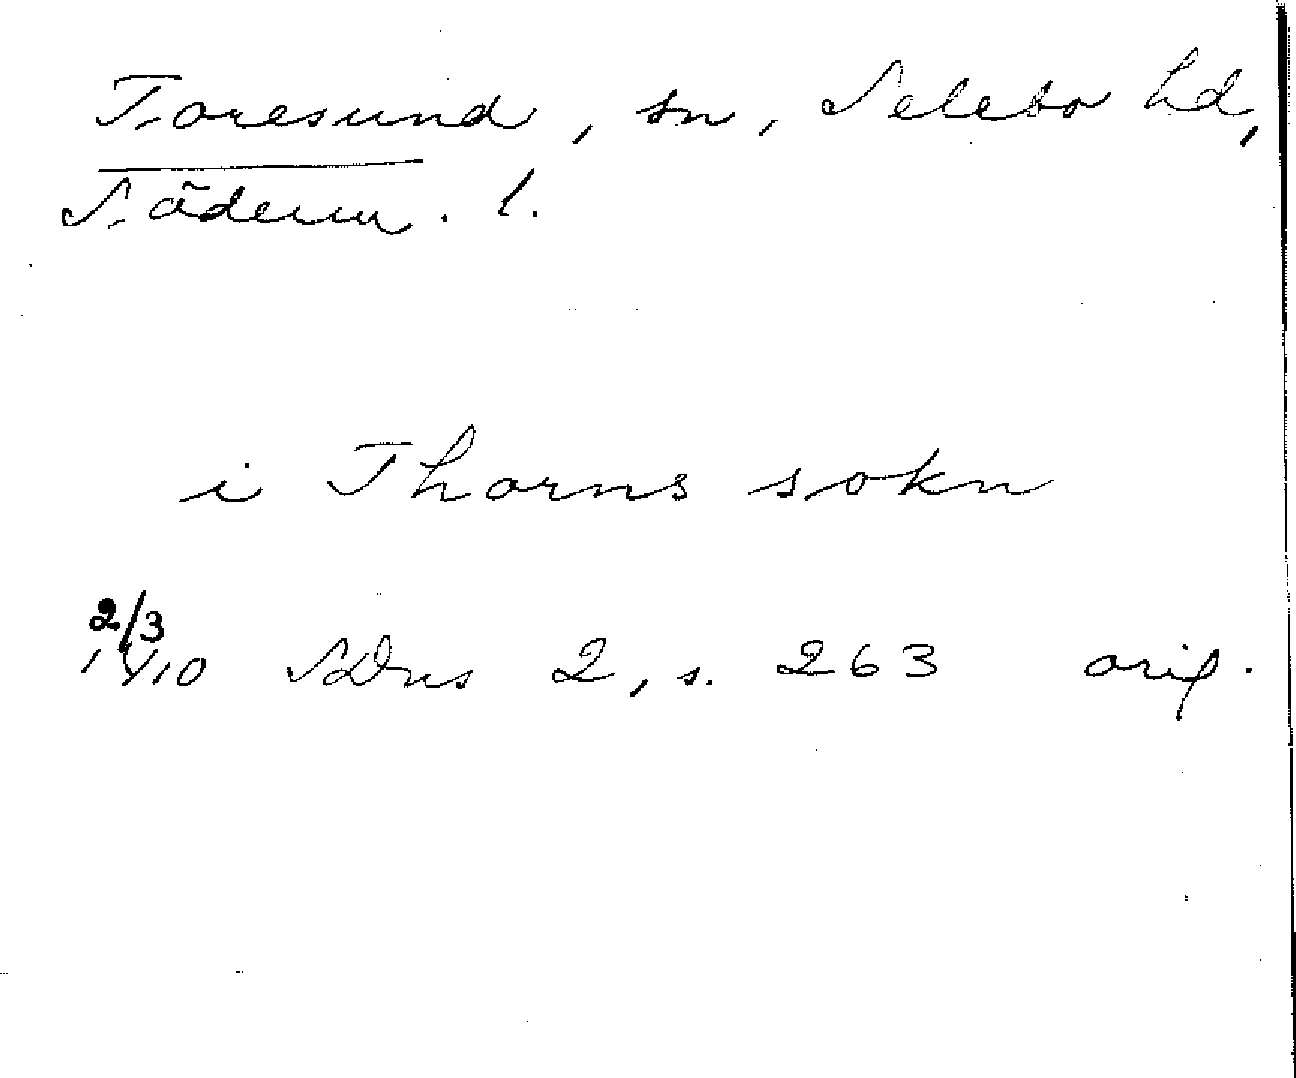 Toresund, sn, Selebo hd,
Söderm. l.
i Thorns sokn
2/3
1410 SDns 2, s. 263 orig.